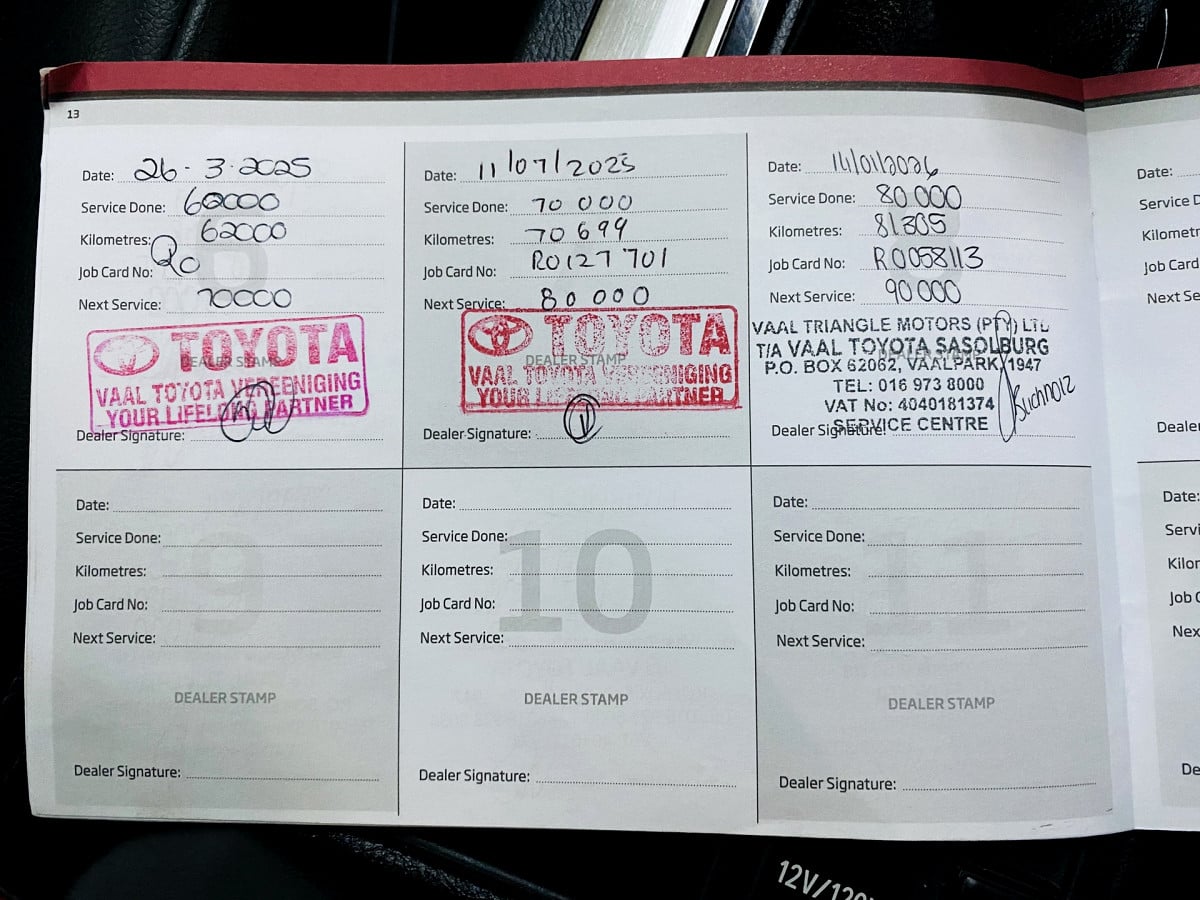 13
Date: 26-3-2025
Service Done: 60000
Kilometres: 62000
Job Card No: RO
Next Service: 70000
TOYOTA
DEALER STAMP
VAAL TOYOTA VEREENIGING
YOUR LIFELONG PARTNER
Dealer Signature:
Date: 11/07/2025
Service Done: 70 000
Kilometres: 70 699
Job Card No: R0127701
Next Service: 80 000
TOYOTA
DEALER STAMP
VAAL TOYOTA VEREENIGING
YOUR LIFELONG PARTNER
Dealer Signature:
Date: 14/01/2026
Service Done: 80 000
Kilometres: 81305
Job Card No: R0058113
Next Service: 90 000
VAAL TRIANGLE MOTORS (PTY) LTD
T/A VAAL TOYOTA SASOLBURG
DEALER STAMP
P.O. BOX 62062, VAALPARK, 1947
TEL: 016 973 8000
VAT No: 4040181374
SERVICE CENTRE
Dealer Signature:
Date:
Service Done:
Kilometres:
Job Card No:
Next Service:
9
DEALER STAMP
Dealer Signature:
Date:
Service Done:
Kilometres:
Job Card No:
Next Service:
10
DEALER STAMP
Dealer Signature:
Date:
Service Done:
Kilometres:
Job Card No:
Next Service:
11
DEALER STAMP
Dealer Signature:
Date:
Service D
Kilometr
Job Card
Next Se
Dealer
Date:
Servi
Kilor
Job C
Nex
De
12V/120